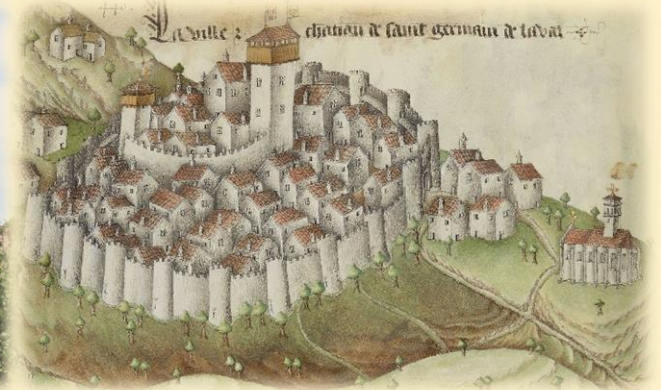 La ville z chastiau de saint germain de laval